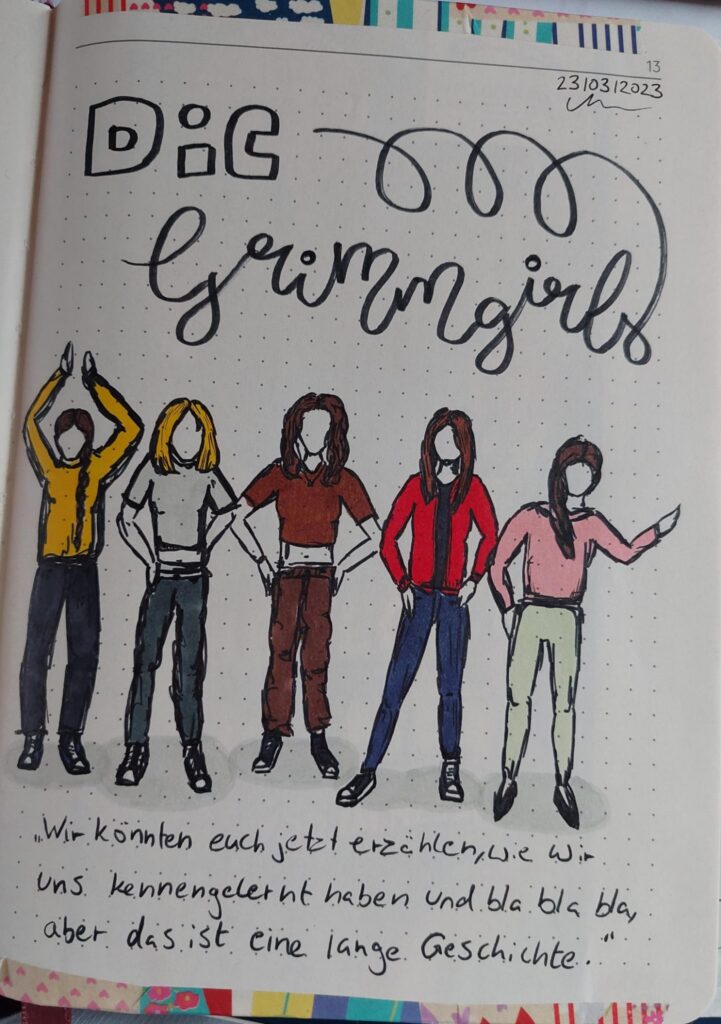 13
23|03|2023
DiE
Grimmgirls
„Wir könnten euch jetzt erzählen, wie wir
uns kennengelernt haben und bla bla bla,
aber das ist eine lange Geschichte."